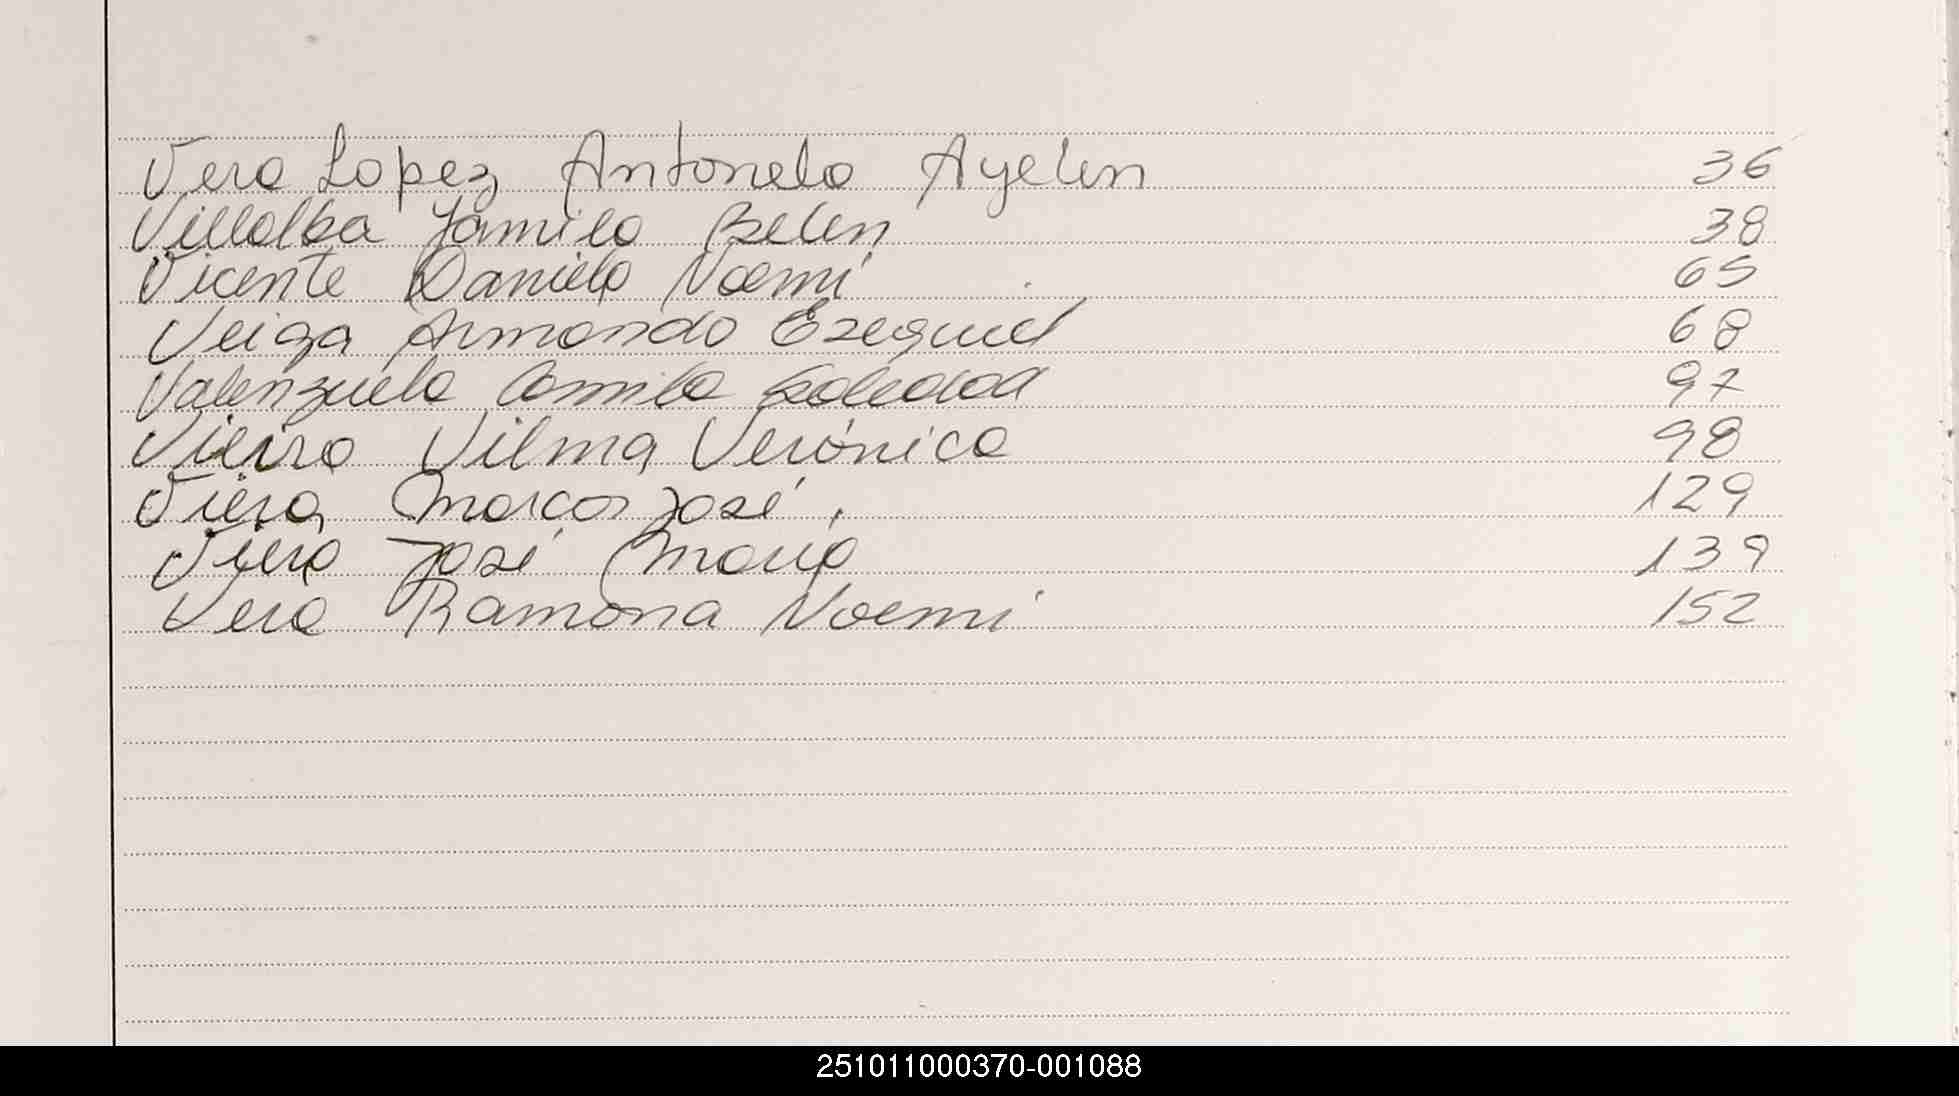 Vera Lopez Antonela Ayelen 36
Villalba Jamila Belen 38
Vicente Daniela Noemí 65
Veiga Armando Ezequiel 68
Valenzuela Camila Soledad 97
Vieira Vilma Verónica 98
Viera Marcos José 129
Viera José Maria 139
Vera Ramona Noemí 152
251011000370-001088